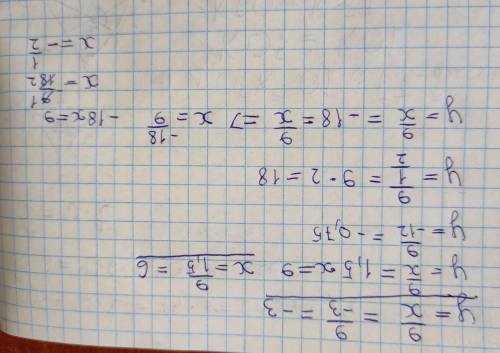 y = 9/x = 9/-3 = -3
y = 9/x = 1,5 x = 9 x = 9/1,5 = 6
y = 9/-12 = -0,75
y = 9/1/2 = 9 · 2 = 18
y = 9/x = -18 = 9/x => x = -18/9 -18x = 9
x = -9 1/18 2
x = -1/2